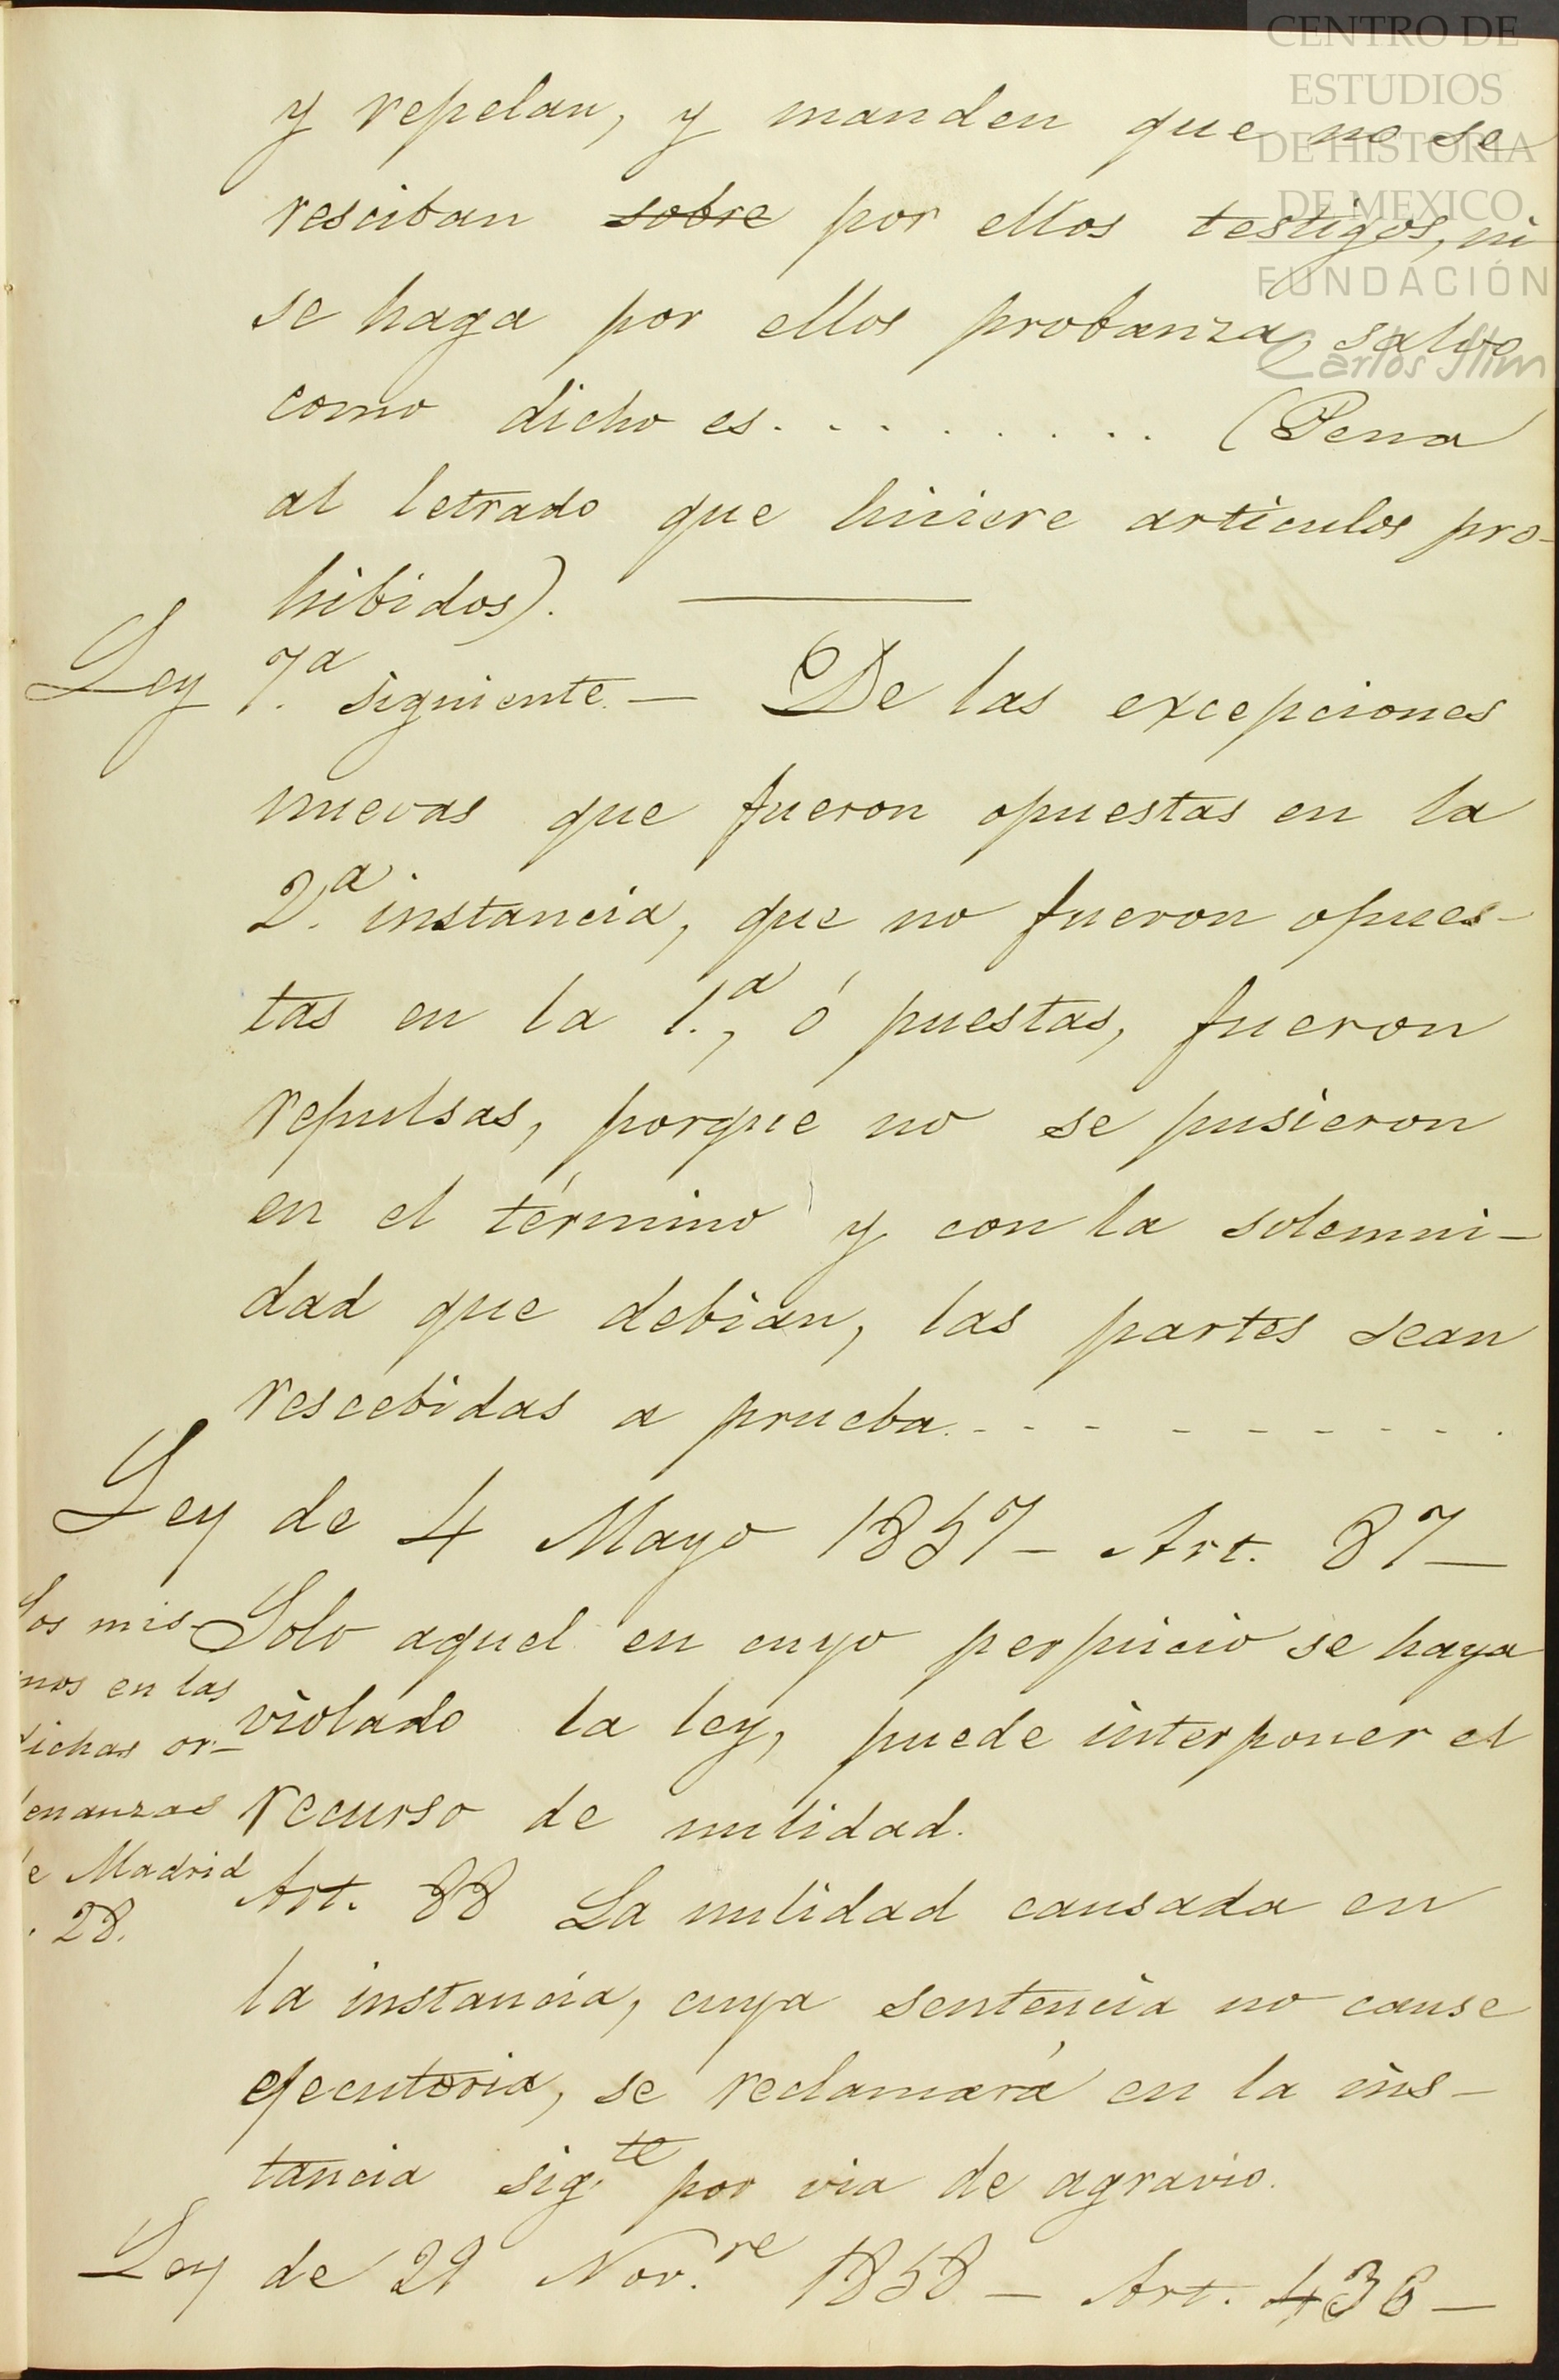 CENTRO DE
ESTUDIOS
DE HISTORIA
DE MEXICO
FUNDACIÓN
Carlos Slim
y repelan, y manden que no se
resciban sobre por ellos testigos, ni
se haga por ellos probanza, salvo
como dicho es. . . . . . . . . (Pena
al letrado que hiciere artículos pro-
hibidos).
Ley 7.a siguiente. — De las excepciones
nuevas que fueron opuestas en la
2.a instancia, que no fueron opues-
tas en la 1.a, ó puestas, fueron
repulsas, porque no se pusieron
en el término y con la solemni-
dad que debian, las partes sean
rescebidas a prueba. - - - - - - - - - .
Ley de 4 Mayo 1857 — Art. 87 —
Solo aquel en cuyo perjuicio se haya
violado la ley, puede interponer el
recurso de nulidad.
Los mis-
mos en las
dichas or-
denanzas
de Madrid
. 28.
Art. 88 La nulidad causada en
la instancia, cuya sentencia no cause
ejecutoria, se reclamará en la ins-
tancia sig.te por via de agravio.
Ley de 29 Nov.re 1858 — Art. 436 —